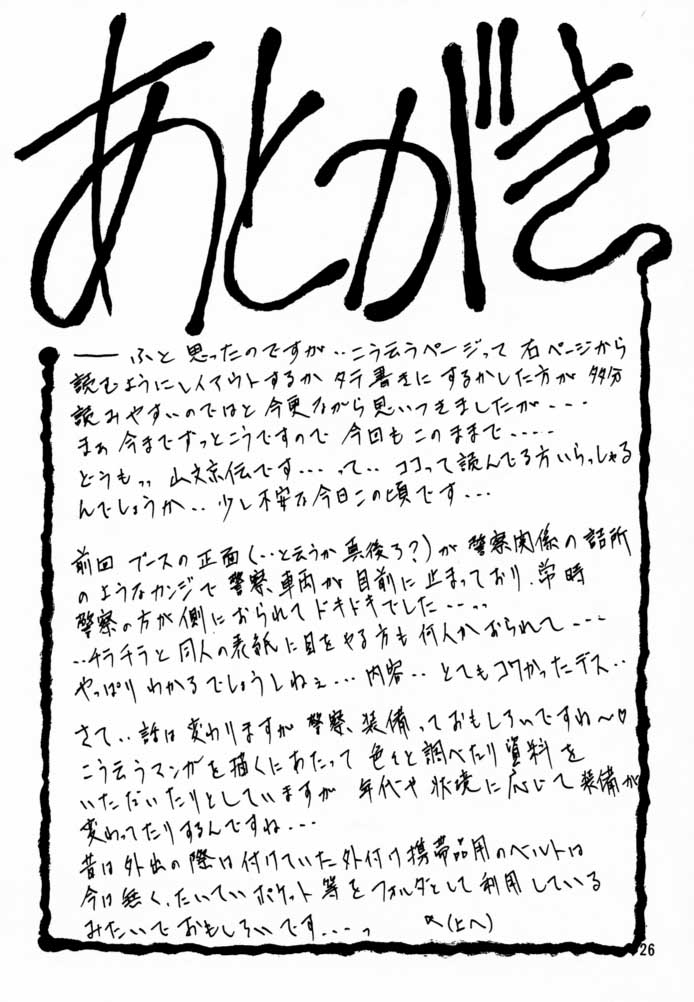 あとがき
── ふと思ったのですが‥こう云うページって右ページから
読むようにレイアウトするかタテ書きにするかした方が多分
読みやすいのではと今更ながら思いつきましたが---
まぁ今までずっとこうですので今回もこのままで-----
どうも、、山文京伝です---って‥ココって読んでる方いらっしゃる
んでしょうか‥少し不安な今日この頃です---
前回ブースの正面(‥と云うか真後ろ?)が警察関係の詰所
のようなカンジで警察車両が目前に止まっており、常時
警察の方が側におられてドキドキでした---、、
‥チラチラと同人の表紙に目をやる方も何人かおられて---
やっぱりわかるでしょうしねぇ---内容‥とてもコワかったデス‥
さて‥話は変わりますが警察装備っておもしろいですね〜♡
こう云うマンガを描くにあたって色々と調べたり資料を
いただいたりとしていますが年代や状境に応じて装備が
変わってたりするんですね---
昔は外出の際は付けていた外付け携帯品用のベルトは
今は無く、たいていポケット等をフォルダとして利用している
みたいでおもしろいです---っ (上へ)
26